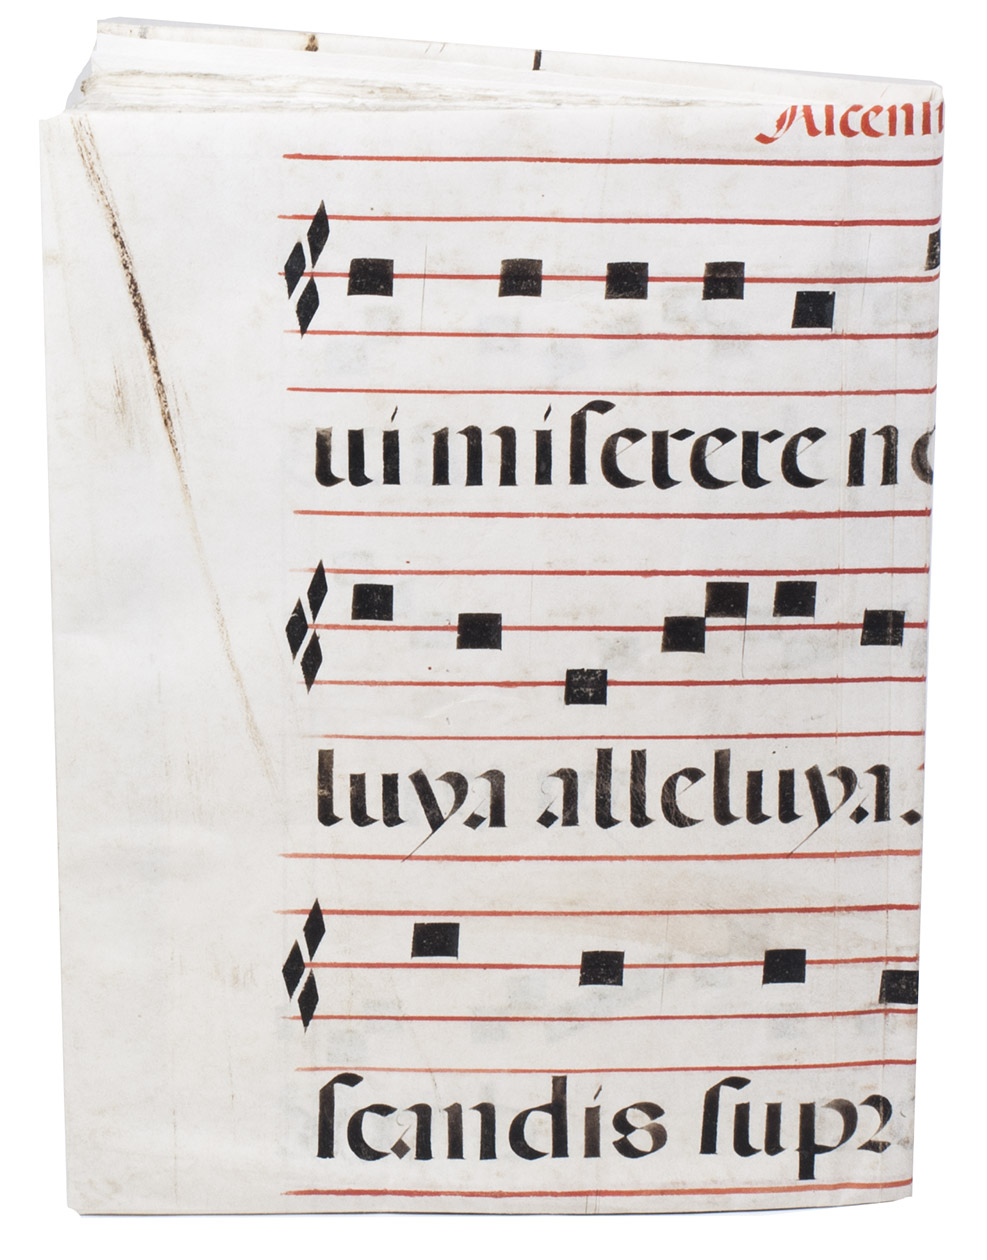 ui miſerere no
luya alleluya.
ſcandis ſupꝛ